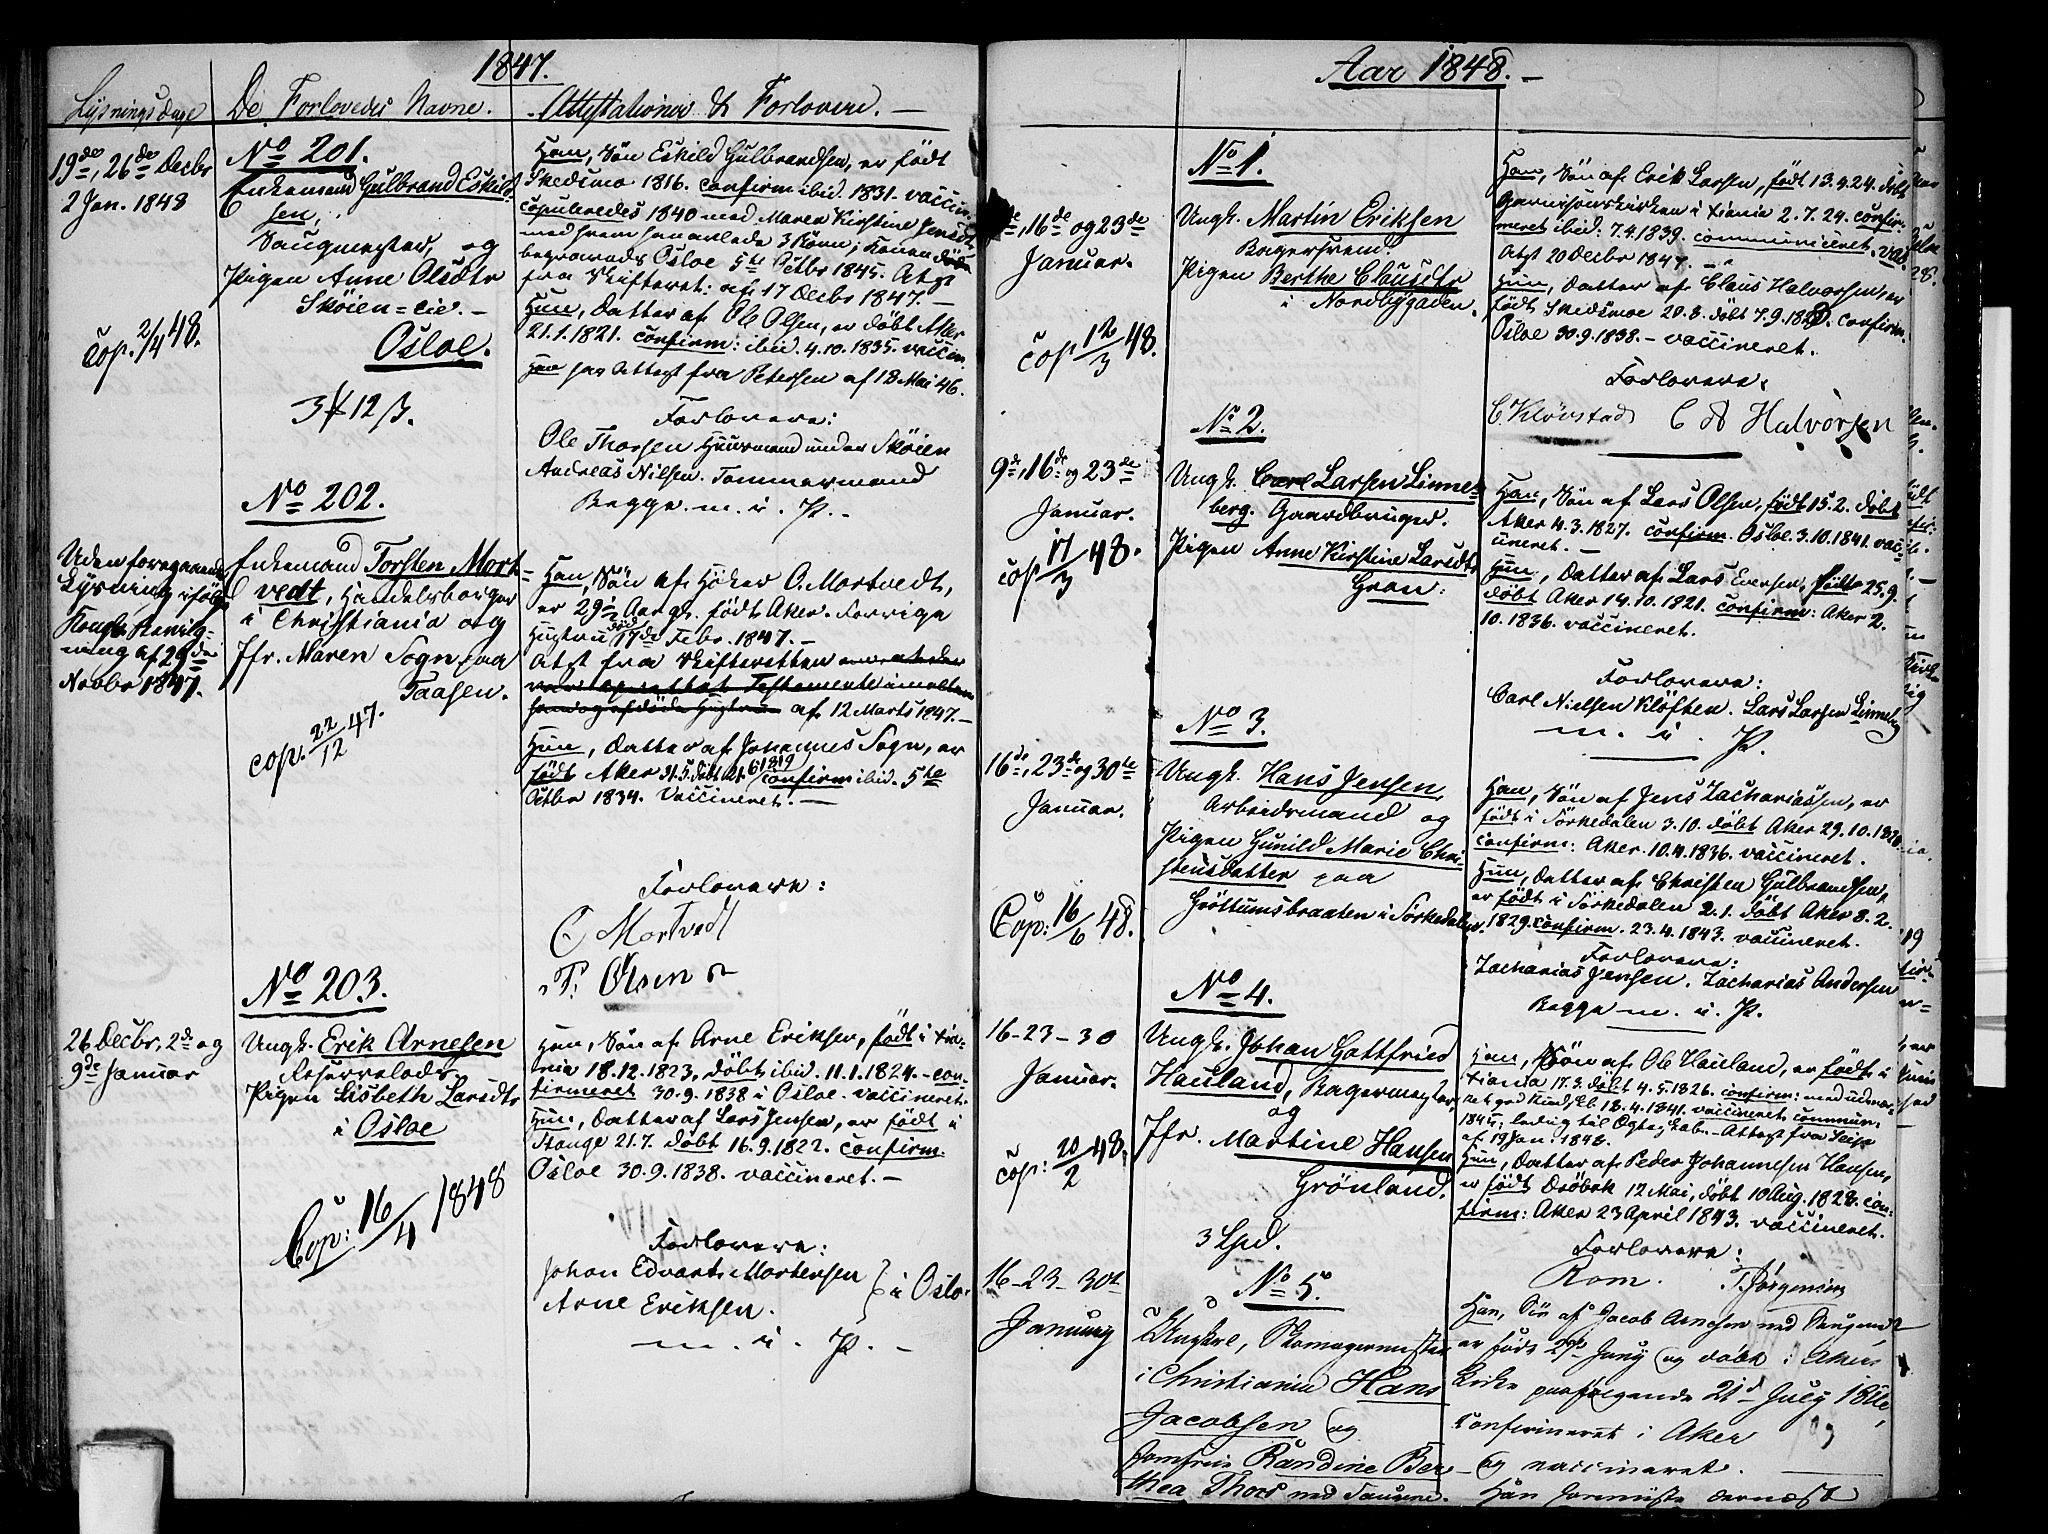 1847.
Lysningsdage
De Forlovedes Navne.
Attestationer & Forlovere. —
19de, 26de Decbr
2 Jan. 1848
Cop. 2/1 48.
No 201.
Enkemand Gulbrand Eskild-
sen,
Saugmester, og
Pigen Anne Olsdtr
Skøien=eie. —
Osloe.
3 12 ß.
Han, Søn Eskild Gulbrandsen, er født
Skedsmo 1816. confirm ibid 1831. vaccin.
copuleredes 1840 med Maren Kirstine Jensdtr
med hvem han avlede 3 Børn; Konen døde
begravedes Osloe 5te Octbr 1845. Atst
fra Skifteret: af 17 Decbr 1847. —
Hun, Datter af Ole Olsen, er døbt Aker
21.1.1821. confirm: ibid. 4.10.1835. vaccin.
Hun har Attest fra Petersen af 18 Mai 46.
Forlovere:
Ole Thorsen Huusmand under Skøien
Andreas Nilsen. Tømmermand
Begge m. i. P. —
Uden foregaaende
Lysning ifølge
Kongl. Bevilg-
ning af 29de
Novbr 1847.
No 202.
Enkemand Torsten Mort=
vedt, Handelsborger
i Christiania og
Jfr. Maren Sogn paa
Taasen.
cop. 22/12 47.
Han, Søn af Høker O. Mortvedt,
er 29½ Aar gl. født Aker. Forrige
Hustru død 17de Febr. 1847. —
Atst fra Skifteretten
af 12 Marts 1847. —
Hun, Datter af Johannes Sogn, er
født Aker 31.5. døbt 21.6 1819 confirm ibid. 5te
Octbr 1834. Vaccineret. —
Forlovere:
O Mortvedt
T. Olsen
26 Decbr, 2de og
9de Januar
No 203.
Ungk. Erik Arnesen
Reservelods
Pigen Lisbeth Larsdtr
i Osloe
Cop: 16/4 1848
Han, Søn af Arne Eriksen, født i Xia-
nia 18.12.1823, døbt ibid. 11.1.1824. — con-
firmeret 30.9.1838 i Osloe. vaccineret.
Hun, Datter af Lars Jensen, er født i
Stange 21.7. døbt 16.9.1822. confirm.
Osloe 30.9.1838. vaccineret. —
Forlovere:
Johan Edvart Mortensen
Arne Eriksen. } i Oslo.
m. i. P. —
Aar 1848. —
16de og 23de
Januar.
cop 12/3 48.
No 1.
Ungk. Martin Eriksen
Bagersvend.
Pigen Berthe Clausdtr
i Nordbygaden.
Han, Søn af Erik Larsen, født 13.4.24. døbt
Garnisonskirken i Xiania 2.7.24. confir-
meret ibid: 7.4.1839. communiceret. vac.
Atst 20 Decbr 1847. —
Hun, Datter af Claus Halvorsen, er
født Skedsmoe 20.8. døbt 7.9. confirm.
Osloe 30.9.1838. — vaccineret.
Forlovere:
C. Kløvstad C A Halvorsen
9de, 16de og 23de
Januar.
cop 17/3 48.
No 2.
Ungk. Carl Larsen Linne-
berg. Gaardbruger.
Pigen Anne Kirstine Larsdtr
Gran:
Han, Søn af Lars Olsen, født 15.2. døbt
Aker 4.3.1827. confirm. Osloe 3.10.1841. vac-
cineret. —
Hun, Datter af Lars Eversen, født 25.9.
døbt Aker 14.10.1821. confirm: Aker 2.
10.1836. vaccineret.
Forlovere:
Carl Nielsen Kløften. Lars Larsen Linneberg
m. i. P.
16de, 23de og 30te
Januar.
Cop: 16/6 48.
No 3.
Ungk. Hans Jensen,
Arbeidsmand og
Pigen Gunild Marie Chri-
stensdatter paa
Grøttumsbraaten i Sørkedalen.
Han, Søn af Jens Zachariassen, er
født i Sørkedalen 3.10. døbt Aker 29.10.1820.
confirm: Aker. 10.4.1836. vaccineret.
Hun, Datter af Christen Gulbrandsen,
er født i Sørkedalen 2.1. døbt Aker 8.2.
1829. confirm. 23.4.1843. vaccineret.
Forlovere:
Zacharias Jensen. Zacharias Andersen
Begge m. i. P.
16-23-30
Januar.
cop: 20/2 48.
No 4.
Ungk. Johan Gottfried
Hauland, Bagermester,
og
Jfr. Martine Hansen
Grønland.
3 Spd.
Han, Søn af Ole Hauland, er født i
Xiania 17.3. døbt 4.5.1826. confirm: med udmær-
ket god Kundskb. 18.4.1841. vaccineret. commun.
1845, ledig til Ægteskab. — Attest fra
af 19 Jan: 1848.
Hun, Datter af Peder Johannesen Hansen,
er født Drøbak 12 Mai, døbt 10 Aug. 1828. con-
firm: Aker 23 April 1843. vaccineret.
Forlovere:
Rom. T. Jørgensen
16-23-30t
Januarj
No 5.
Ungkarl, Skomagermester
i Christiania Hans
Jacobsen og
Jomfrue Randine Ber-
thea Thors
Han, Søn af Jacob Arnesen ved Saugene
er født 29de Junj og døbt i Akers
Kirke paafølgende 21d Julj
Confirmeret i Aker
og vaccineret.
Han